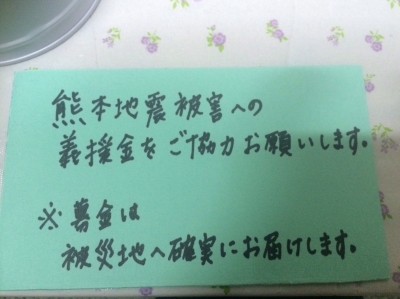 熊本地震被害への
義援金をご協力お願いします。
※募金は
被災地へ確実にお届けします。